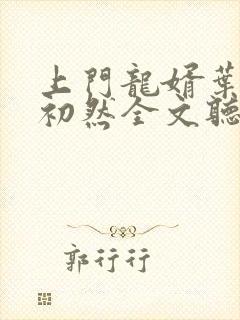 上門龍婿葉
初然全文聽
郭行行